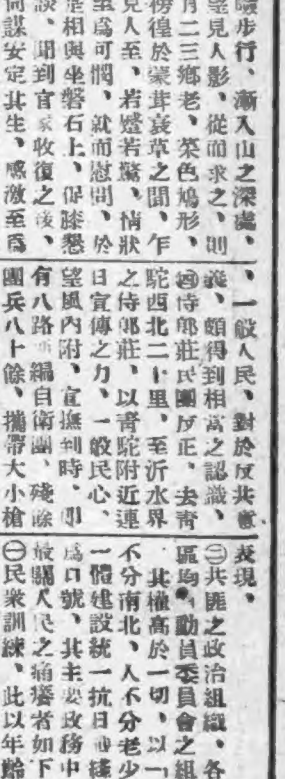 步行、漸入山之深處、
望見人影、從而求之、則
月二三鄉老、菜色鳩形、
徬徨於叢茸衰草之間、乍
見人至、若蹙若驚、情狀
至爲可憫、就而慰問、於
是相與坐磐石上、促膝懇
談、聞到官家收復之後、
何謀安定其生、感激至爲
、一般人民、對於反共意
義、頗得到相當之認識、
㊃侍郎莊民團反正、去靑
駝西北二十里、至沂水界
之侍郎莊、以靑駝附近連
日宣傳之力、一般民心、
望風內附、宣撫到時、卽
有八路所編自衛團、殘餘
團兵八十餘、攜帶大小槍
表現、
㊂共匪之政治組織、各
區均動員委員會之組
、其權高於一切、以「
不分南北、人不分老少
一體建設統一抗日戰綫
爲口號、其主要政務中
最關人民之痛癢者如下
㊀民衆訓練、此以年齡